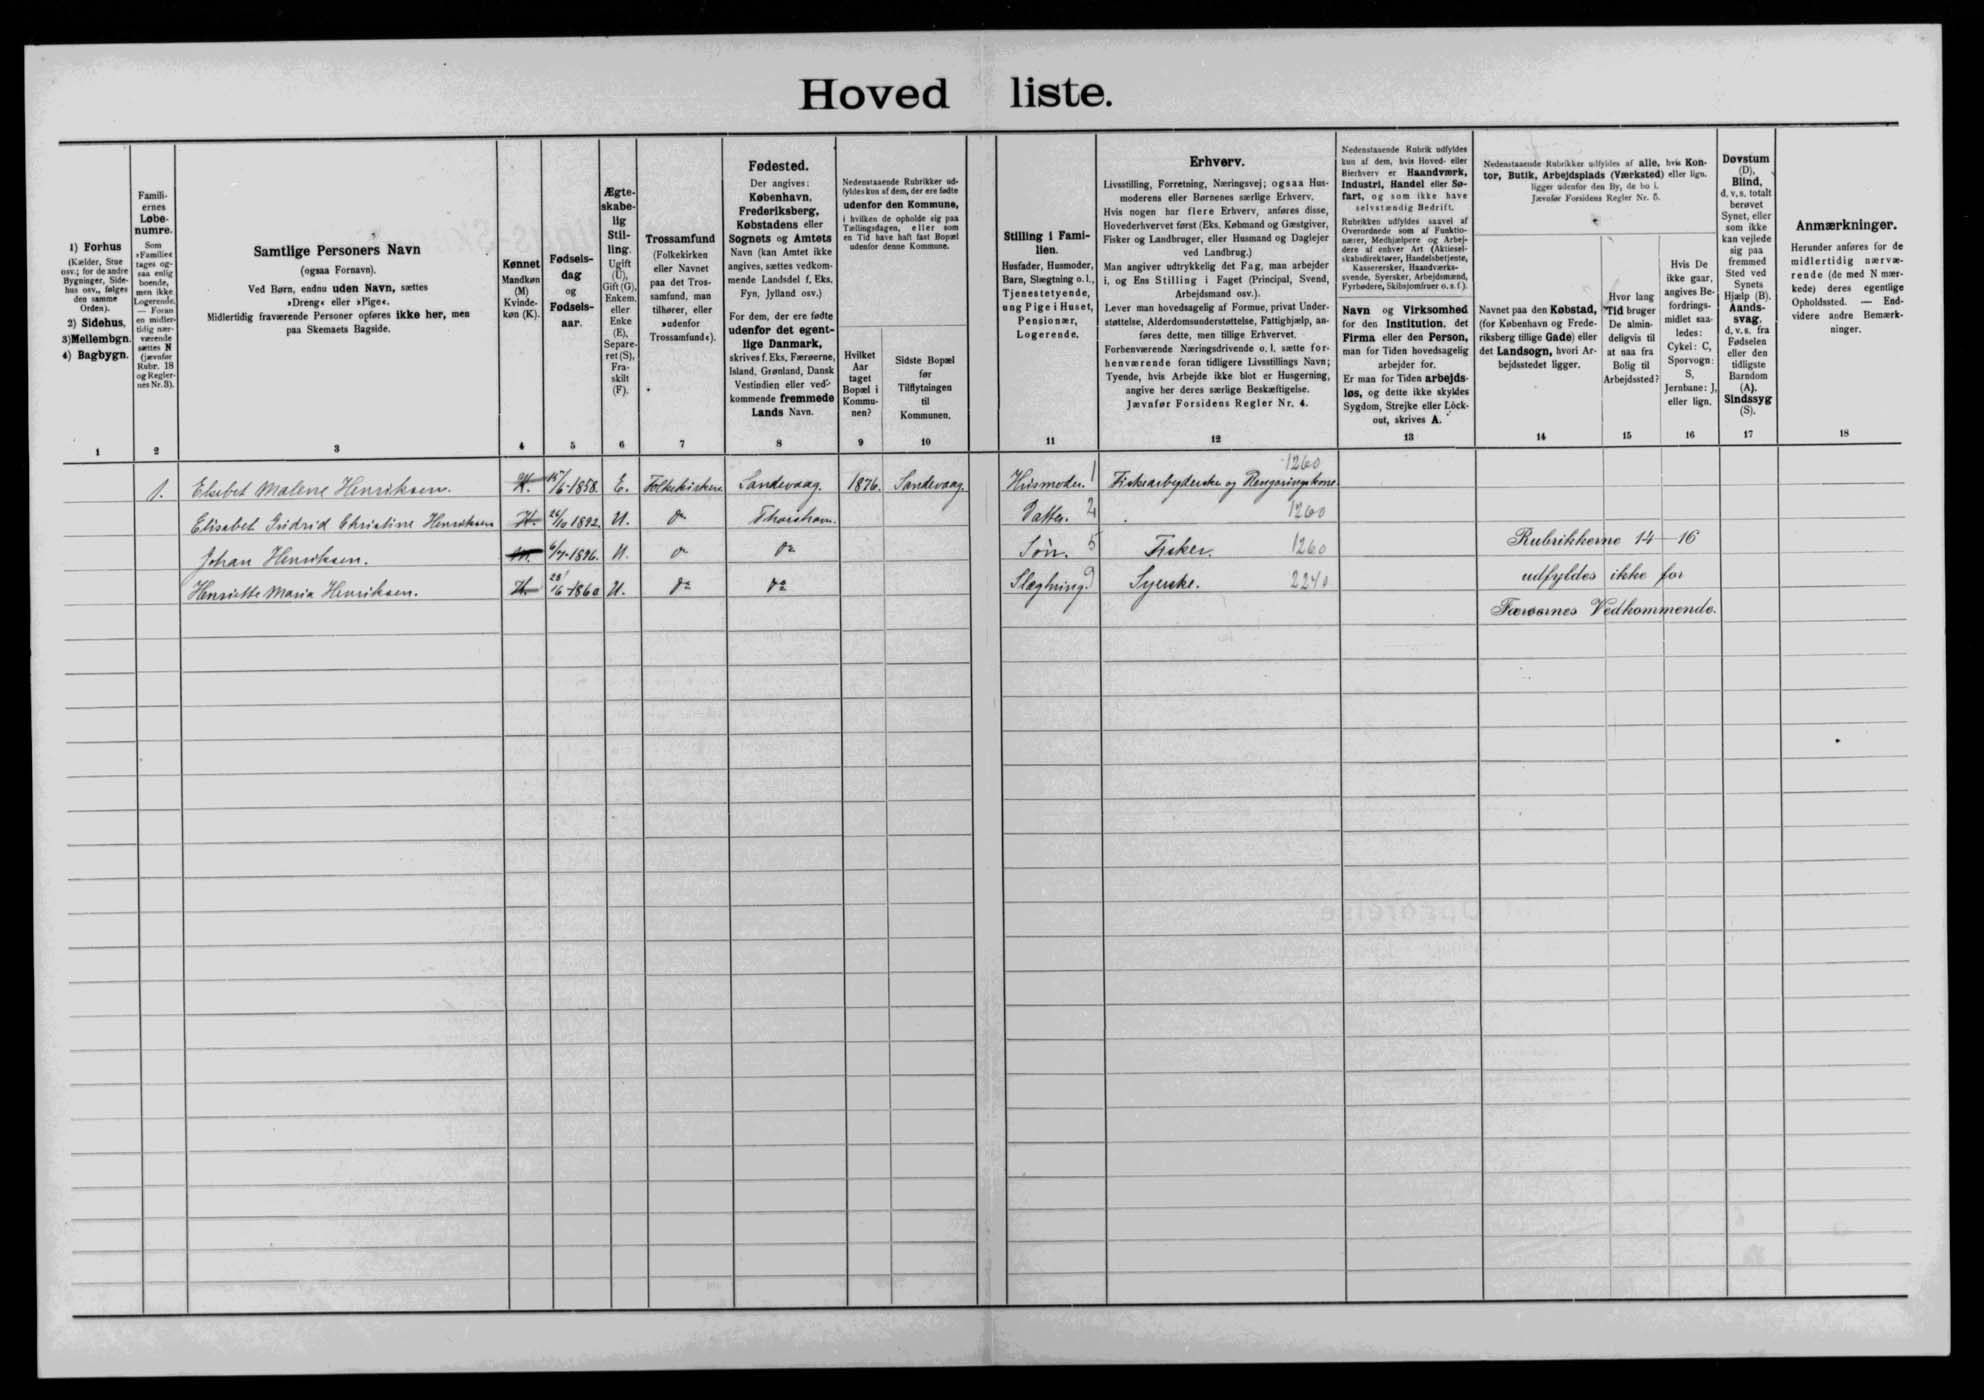 Hoved liste.
1) Forhus
(Kælder, Stue
osv.; for de andre
Bygninger, Side-
hus osv., følges
den samme
Orden).
2) Sidehus,
3) Mellembgn.
4) Bagbygn.
Famili-
ernes
Løbe-
numre.
Som
»Familie«
tages og-
saa enlig
boende,
men ikke
Logerende.
— Foran
en midler-
tidig nær-
værende
sættes N
(jævnfør
Rubr. 18
og Regler-
nes Nr. 3).
Samtlige Personers Navn
(ogsaa Fornavn).
Ved Børn, endnu uden Navn, sættes
»Dreng« eller »Pige«.
Midlertidig fraværende Personer opføres ikke her, men
paa Skemaets Bagside.
Kønnet
Mandkøn
(M)
Kvinde-
køn (K).
Fødsels-
dag
og
Fødsels-
aar.
Ægte-
skabe-
lig
Stil-
ling.
Ugift
(U),
Gift (G),
Enkem.
eller
Enke
(E),
Separe-
ret (S),
Fra-
skilt
(F).
Trossamfund
(Folkekirken
eller Navnet
paa det Tros-
samfund, man
tilhører, eller
»udenfor
Trossamfund«).
Fødested.
Der angives:
København,
Frederiksberg,
Købstadens eller
Sognets og Amtets
Navn (kan Amtet ikke
angives, sættes vedkom-
mende Landsdel f. Eks.
Fyn, Jylland osv.)
For dem, der ere fødte
udenfor det egent-
lige Danmark,
skrives f. Eks. Færøerne,
Island, Grønland, Dansk
Vestindien eller ved-
kommende fremmede
Lands Navn.
Nedenstaaende Rubrikker ud-
fyldes kun af dem, der ere fødte
udenfor den Kommune,
i hvilken de opholde sig paa
Tællingsdagen, eller som
en Tid have haft fast Bopæl
udenfor denne Kommune.
Hvilket
Aar
taget
Bopæl i
Kommu-
nen?
Sidste Bopæl
før
Tilflytningen
til
Kommunen.
Stilling i Fami-
lien.
Husfader, Husmoder,
Barn, Slægtning o. l.,
Tjenestetyende,
ung Pige i Huset,
Pensionær,
Logerende.
Erhverv.
Livsstilling, Forretning, Næringsvej; ogsaa Hus-
moderens eller Børnenes særlige Erhverv.
Hvis nogen har flere Erhverv, anføres disse,
Hovederhvervet først (Eks. Købmand og Gæstgiver,
Fisker og Landbruger, eller Husmand og Daglejer
ved Landbrug.)
Man angiver udtrykkelig det Fag, man arbejder
i, og Ens Stilling i Faget (Principal, Svend,
Arbejdsmand osv.).
Lever man hovedsagelig af Formue, privat Under-
støttelse, Alderdomsunderstøttelse, Fattighjælp, an-
føres dette, men tillige Erhvervet.
Forbenværende Næringsdrivende o. l. sætte for-
henværende foran tidligere Livsstillings Navn;
Tyende, hvis Arbejde ikke blot er Husgerning,
angive her deres særlige Beskæftigelse.
Jævnfør Forsidens Regler Nr. 4.
Nedenstaaende Rubrik udfyldes
kun af dem, hvis Hoved- eller
Bierhverv er Haandværk,
Industri, Handel eller Sø-
fart, og som ikke have
selvstændig Bedrift.
Rubrikken udfyldes saavel af
Overordnede som af Funktio-
nærer, Medhjælpere og Arbej-
dere af enhver Art (Aktiesel-
skabsdirektører, Handelsbetjente,
Kasserersker, Haandværks-
svende, Syersker, Arbejdsmænd,
Fyrbødere, Skibsjomfruer o. s. f.).
Navn og Virksomhed
for den Institution, det
Firma eller den Person,
man for Tiden hovedsagelig
arbejder for.
Er man for Tiden arbejds-
løs, og dette ikke skyldes
Sygdom, Strejke eller Lock-
out, skrives A.
Nedenstaaende Rubrikker udfyldes af alle, hvis Kon-
tor, Butik, Arbejdsplads (Værksted) eller lign.
ligger udenfor den By, de bo i.
Jævnfør Forsidens Regler Nr. 5.
Navnet paa den Købstad,
(for København og Frede-
riksberg tillige Gade) eller
det Landsogn, hvori Ar-
bejdsstedet ligger.
Hvor lang
Tid bruger
De almin-
deligvis til
at naa fra
Bolig til
Arbejdssted?
Hvis De
ikke gaar,
angives Be-
fordrings-
midlet saa-
ledes:
Cykel: C,
Sporvogn:
S,
Jernbane: J,
eller lign.
Døvstum
(D),
Blind,
d. v. s. totalt
berøvet
Synet, eller
som ikke
kan vejlede
sig paa
fremmed
Sted ved
Synets
Hjælp (B).
Aands-
svag,
d. v. s. fra
Fødselen
eller den
tidligste
Barndom
(A).
Sindssyg
(S).
Anmærkninger.
Herunder anføres for de
midlertidig nærvæ-
rende (de med N mær-
kede) deres egentlige
Opholdssted. — End-
videre andre Bemærk-
ninger.
1 2 3 4 5 6 7 8 9 10 11 12 13 14 15 16 17 18
1260
1. Elsebet Malene Henriksen. K. 15/6-1858. E. Folkekirken. Sandevaag. 1876. Sandevaag. Husmoder. 1 Fiskearbejderske og Rengøringskone
Elisabet Gudrid Christine Henriksen K. 26/10 1892. U. do Thorshavn. Datter. 2 1260
Johan Henriksen. M. 6/7-1896. U. do do Søn. 5 Fisker. 1260
Henriette Maria Henriksen. K. 28/6-1860 U. do do Slægtning. 9 Syerske. 2240
Rubrikkerne 14-16
udfyldes ikke for
Færøernes Vedkommende.